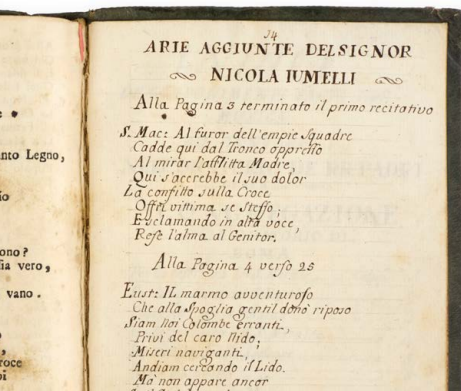 nto Legno,
io
ono?
ia vero,
vano.
roce
14
ARIE AGGIUNTE DEL SIGNOR
NICOLA IUMELLI
Alla Pagina 3 terminato il primo recitativo
S. Mac: Al furor dell'empie Squadre
Cadde qui dal Tronco oppresso
Al mirar l'afflitta Madre,
Qui s'acerebbe il suo dolor
La confitto sulla Croce
Offrì vittima se stesso;
Esclamando in alta voce,
Rese l'alma al Genitor.
Alla Pagina 4 verso 25
Eust: IL marmo avventuroso
Che alla Spoglia gentil donò riposo
Siam noi Colombe erranti,
Privi del caro Nido;
Miseri naviganti,
Andiam cercando il Lido.
Ma non appare ancor